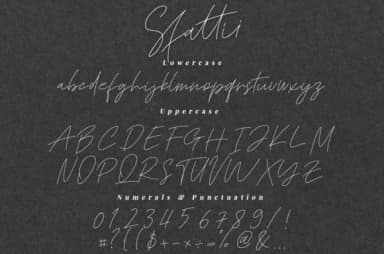 Sfattii
Lowercase
abcdefghijklmnopqrstuvwxyz
Uppercase
ABCDEFGHIJKLM
NOPQRSTUVWXYZ
Numerals & Punctuation
0123456789/!
#?()$+-×÷=%@&...